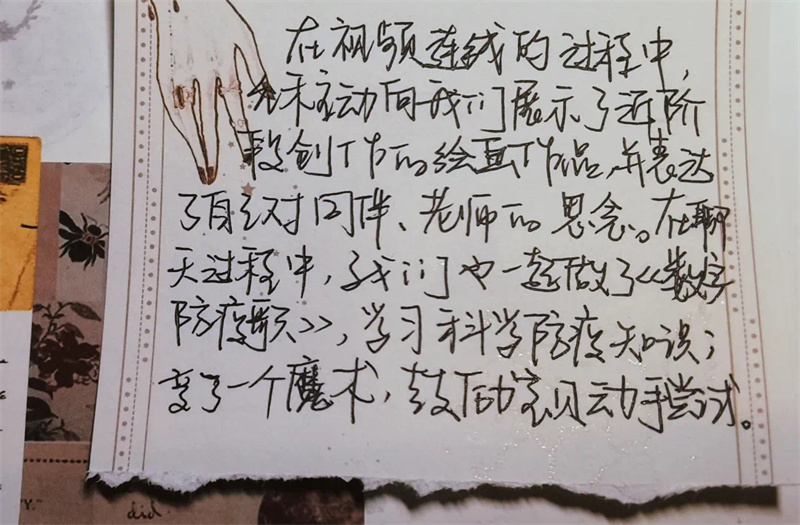 在视频连线的过程中,
主动向我们展示了近阶
段创作的绘画作品,并表达
了自己对同伴、老师的思念。在聊
天过程中,我们也一起做了《数字
防疫歌》,学习科学防疫知识;
变了一个魔术,鼓励宝贝动手尝试。
did